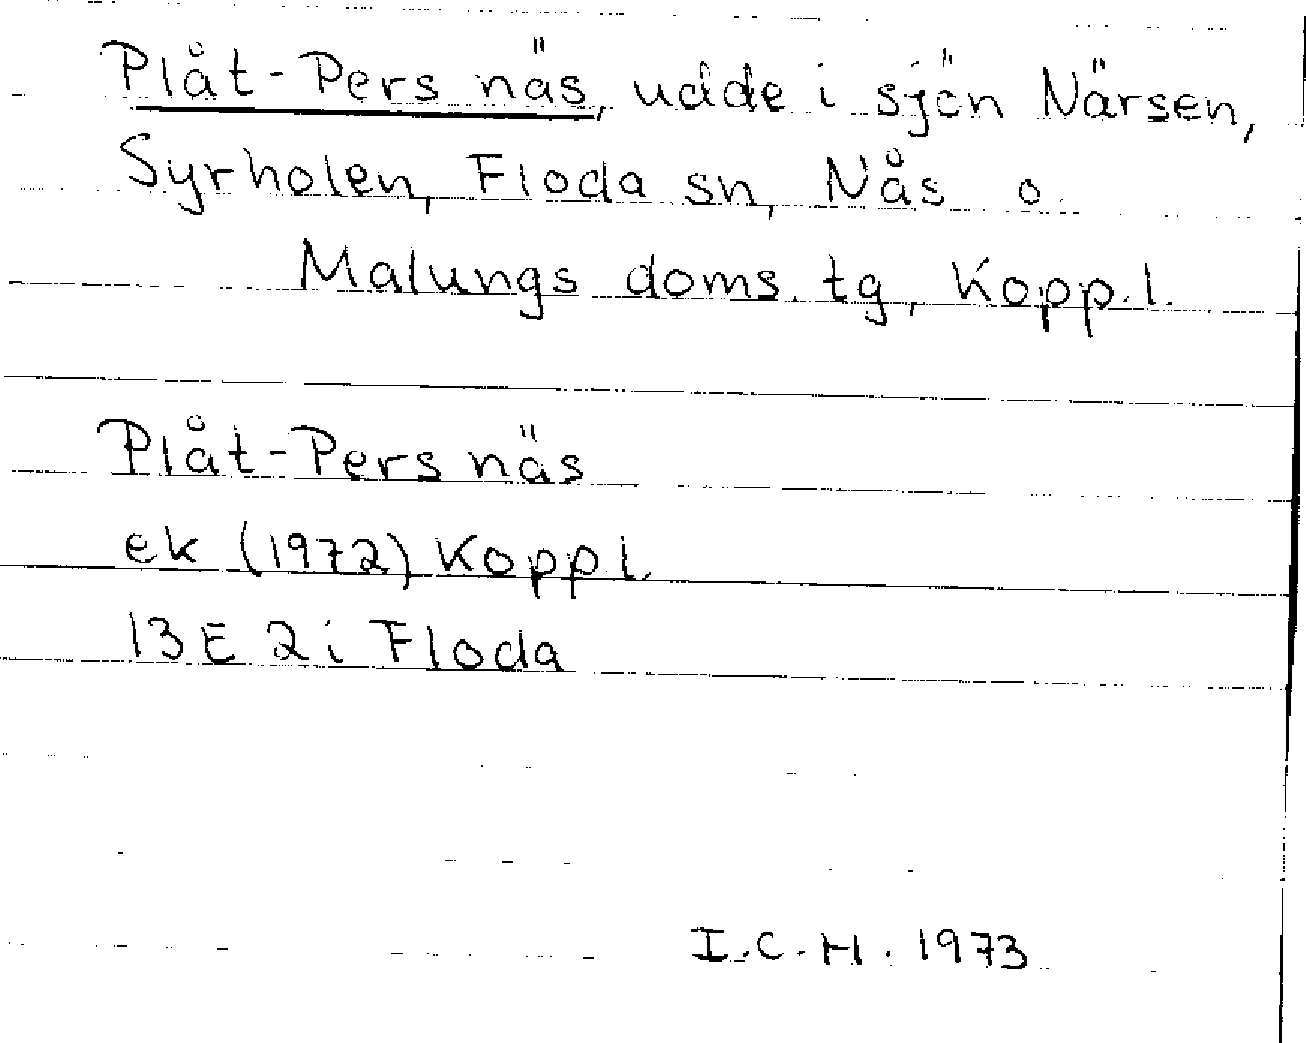 Plåt-Pers näs, udde i sjön Närsen,
Syrholen, Floda sn, Nås o.
Malungs doms. tg, Kopp.l.
Plåt-Pers näs
ek (1972) Koppl.
13E 2i Floda
I.C.H. 1973